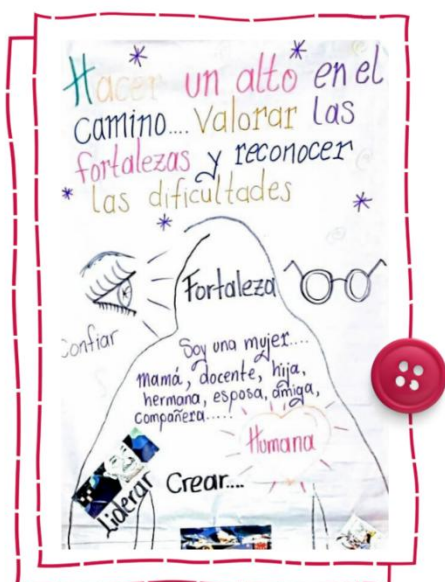 Hacer un alto en el
camino.... Valorar las
fortalezas y reconocer
las dificultades
Fortaleza
Confiar
Soy una mujer....
Mamá, docente, hija,
hermana, esposa, amiga,
Compañera.....
Humana
Liderar
Crear....